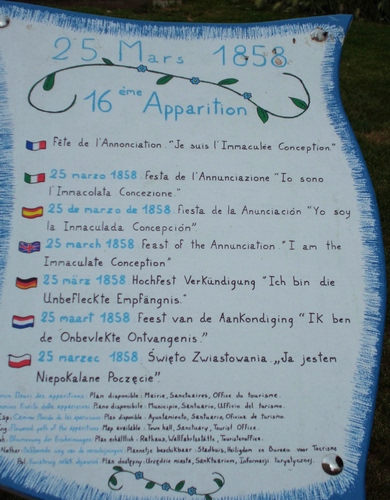 25 Mars 1858
16 ème Apparition
Fête de l'Annonciation. "Je suis l'Immaculée Conception."
25 marzo 1858 Festa de l'Annunciazione "Io sono
l'Immacolata Concezione."
25 de marzo de 1858. Fiesta de la Anunciación "Yo soy
la Inmaculada Concepción".
25 march 1858 Feast of the Annunciation. "I am the
Immaculate Conception"
25 märz 1858 Hochfest Verkündigung "Ich bin die
Unbefleckte Empfängnis."
25 maart 1858. Feest van de Aankondiging "IK ben
de Onbevlekte Ontvangenis."
25 marzec 1858. Święto Zwiastowania „Ja jestem
Niepokalane Poczęcie".
des apparitions. Plan disponible: Mairie, Sanctuaires, Office du tourisme.
delle apparizioni. Piano disponibile: Municipio, Santuario, Ufficio del turismo.
Esp: Camino florido de las apariciones. Plan disponible: Ayuntamiento, Santuario, Oficina de turismo.
path of the apparitions. Map available: Town hall, Sanctuary, Tourist Office.
der Erscheinungen. Plan erhältlich: Rathaus, Wallfahrtsstätte, Touristenoffice.
weg van de verschijningen. Plannetje beschikbaar: Stadhuis, Heiligdom en Bureau voor Toerisme
Pol: objawień. Plan dostępny: Urzędzie miasta, Sanktuarium, Informacji turystycznej.